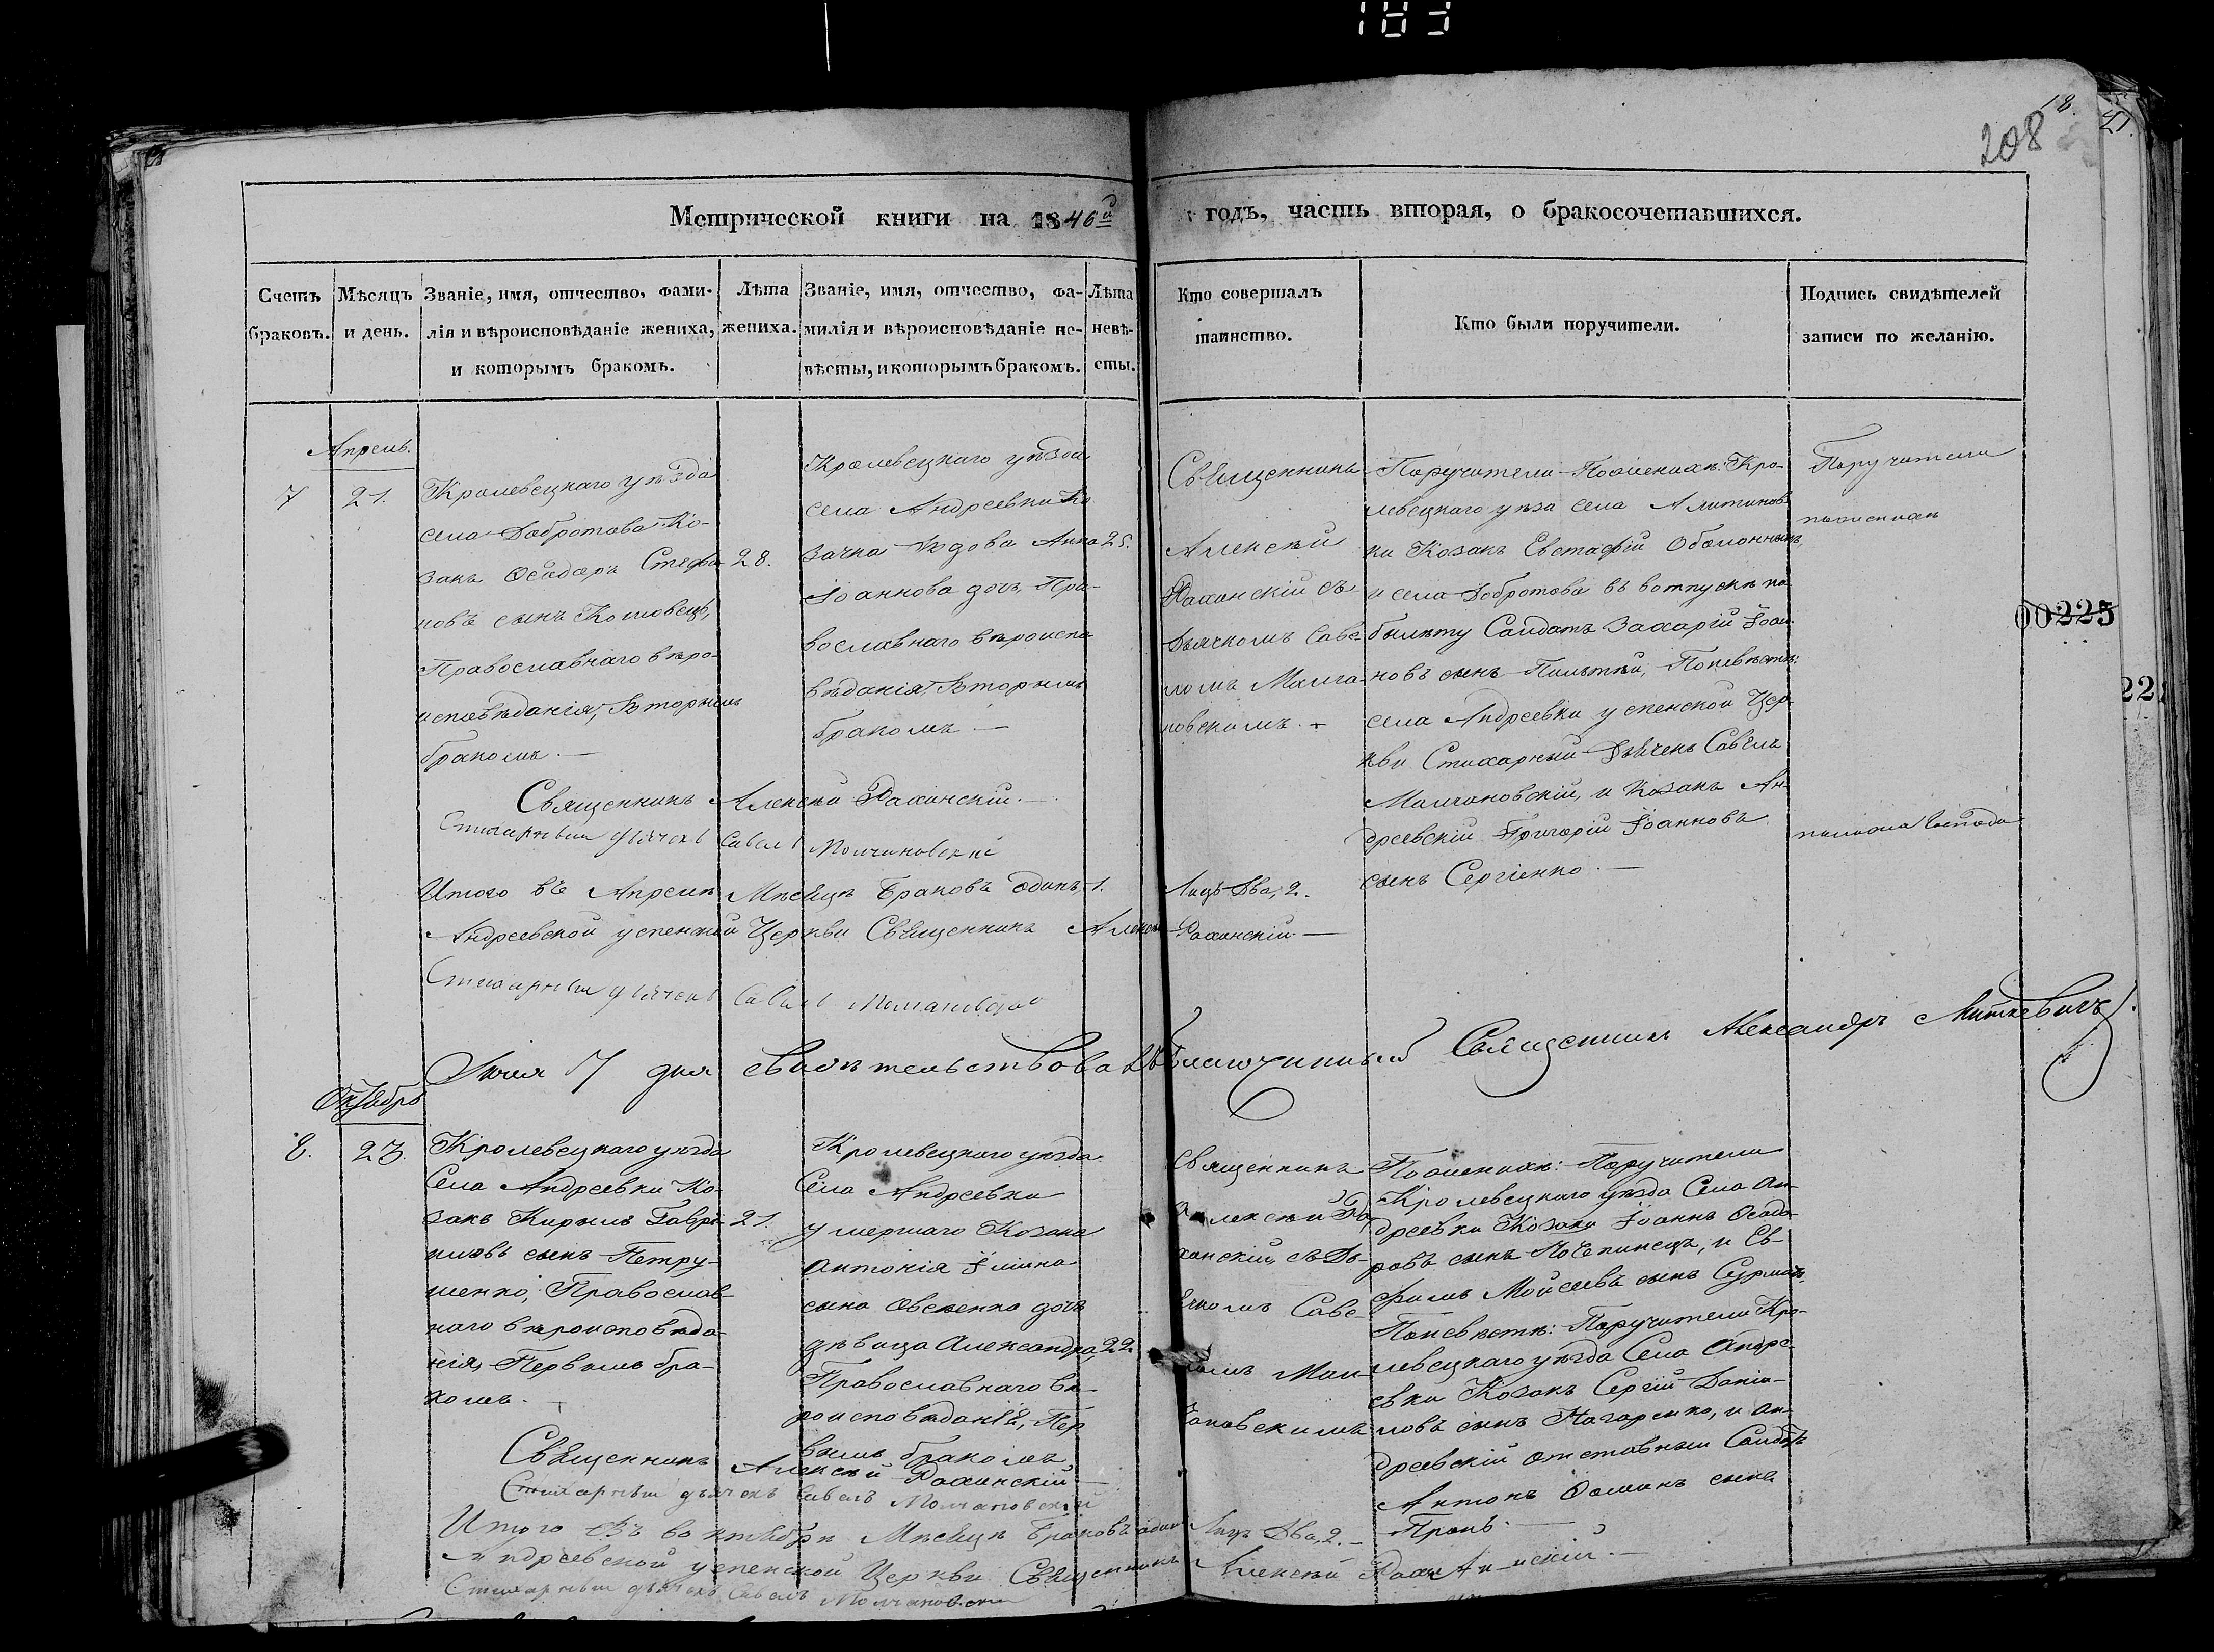 183
18.
208
21.
Метрической книги на 1846й годъ, часть вторая, о бракосочетавшихся.
Счетъ браковъ.
Мѣсяцъ и день.
Званіе, имя, отчество, фами-
лія и вѣроисповѣданіе жениха,
и которымъ бракомъ.
Лѣта
жениха.
Званіе, имя, отчество, фа-
милія и вѣроисповѣданіе не-
вѣсты, и которымъ бракомъ.
Лѣта
невѣ-
сты.
Кто совершалъ
таинство.
Кто были поручители.
Подпись свидѣтелей
записи по желанію.
Апрель.
7
21.
Кролевецкаго уѣзда
села Добротова Ко-
закъ Осидоръ Стефа-
новъ сынъ
Православнаго вѣро-
исповѣданія, Вторымъ
бракомъ. —
28.
Кролевецкаго уѣзда
села Андреевки Ко
зачка Вдова Анна
Іоаннова дочь, Пра-
вославнаго вѣроиспо
вѣданія, Вторымъ
бракомъ —
25.
Священникъ
Алексѣй
Рахинскій съ
Дьячкомъ Саве
ломъ Молча-
новскимъ. —
Поручители По женихѣ: Кро-
левецкаго уѣзда села Алтинов-
ки Козакъ Евстафій
и села Добротова въ вотпускѣ по
билѣту Салдатъ Захарій Іоан-
новъ сынъ Понѣвѣстѣ:
села Андреевки успенской Цер-
кви Стихарный Дьячекъ Савелъ
Молчановскій, и Козакъ Ан-
дреевскій Григорій Іоанновъ
сынъ Сергіенко. —
Поручители
Священникъ Алексѣй Рахинскій. —
Стихарный дьячекъ Савелъ Молчановскій
Итого въ Апрелѣ Мѣсяцѣ Браковъ Одинъ 1. Лицъ Два, 2.
Андреевской успенской Церкви Священникъ Алексѣй Рахинскій —
Стихарный дьячекъ Савелъ Молчановскій
дня свидѣтельствовалъ Благочинный Священникъ Александръ Миткевичъ.
Октябрь
8.
23.
Кролевецкаго уѣзда
Села Андреевки Ко-
закъ Кирилъ Гаври-
иловъ сынъ Петру-
шенко, Православ-
наго вѣроисповѣда-
нія, Первымъ бра-
комъ. —
21.
Кролевецкаго уѣзда
Села Андреевки
умершаго Козака
Антонія
сына Овсеенка дочь
дѣвица Александра,
Православнаго вѣ-
роисповѣданія, Пер
вымъ бракомъ
22
Священникъ
Алексѣй Ра
хинскій, съ Дь-
ячкомъ Саве-
ломъ Мол-
чановскимъ
По женихѣ: Поручители
Кролевецкаго уѣзда Села Ан-
дреевки Козаки Іоаннъ Осидо-
ровъ сынъ и Ев-
фимъ Моисеевъ сынъ
Понѣвѣстѣ: Поручители Кро-
левецкаго уѣзда Села Андре-
евки Козакъ Сергій Даніи-
ловъ сынъ Нагаренко, и Ан-
дреевскій отставный Салдатъ
Антонъ сынъ
Пронь. —
Священникъ Алексѣй Рахинскій —
Стихарный дьячекъ Савелъ Молчановскій
Итого въ во октябрѣ Мѣсяцѣ Браковъ один Лицъ Два, 2. —
Андреевской успенской Церкви Священникъ Алексѣй Рахинскій. —
Стихарный дьячекъ Савелъ Молчановскій
00225
22